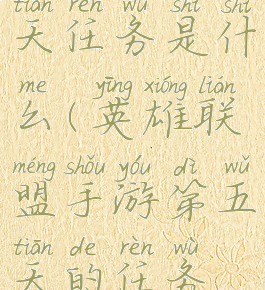 tiān rèn wù shì shí
天任务是什
me yīng xióng lián
么(英雄联
méng shǒu yóu dì wǔ
盟手游第五
tiān de rèn wù
天的任务